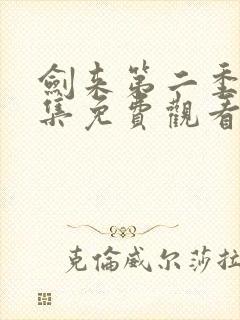 劍来第二季
集免費觀看
克倫威尔莎拉